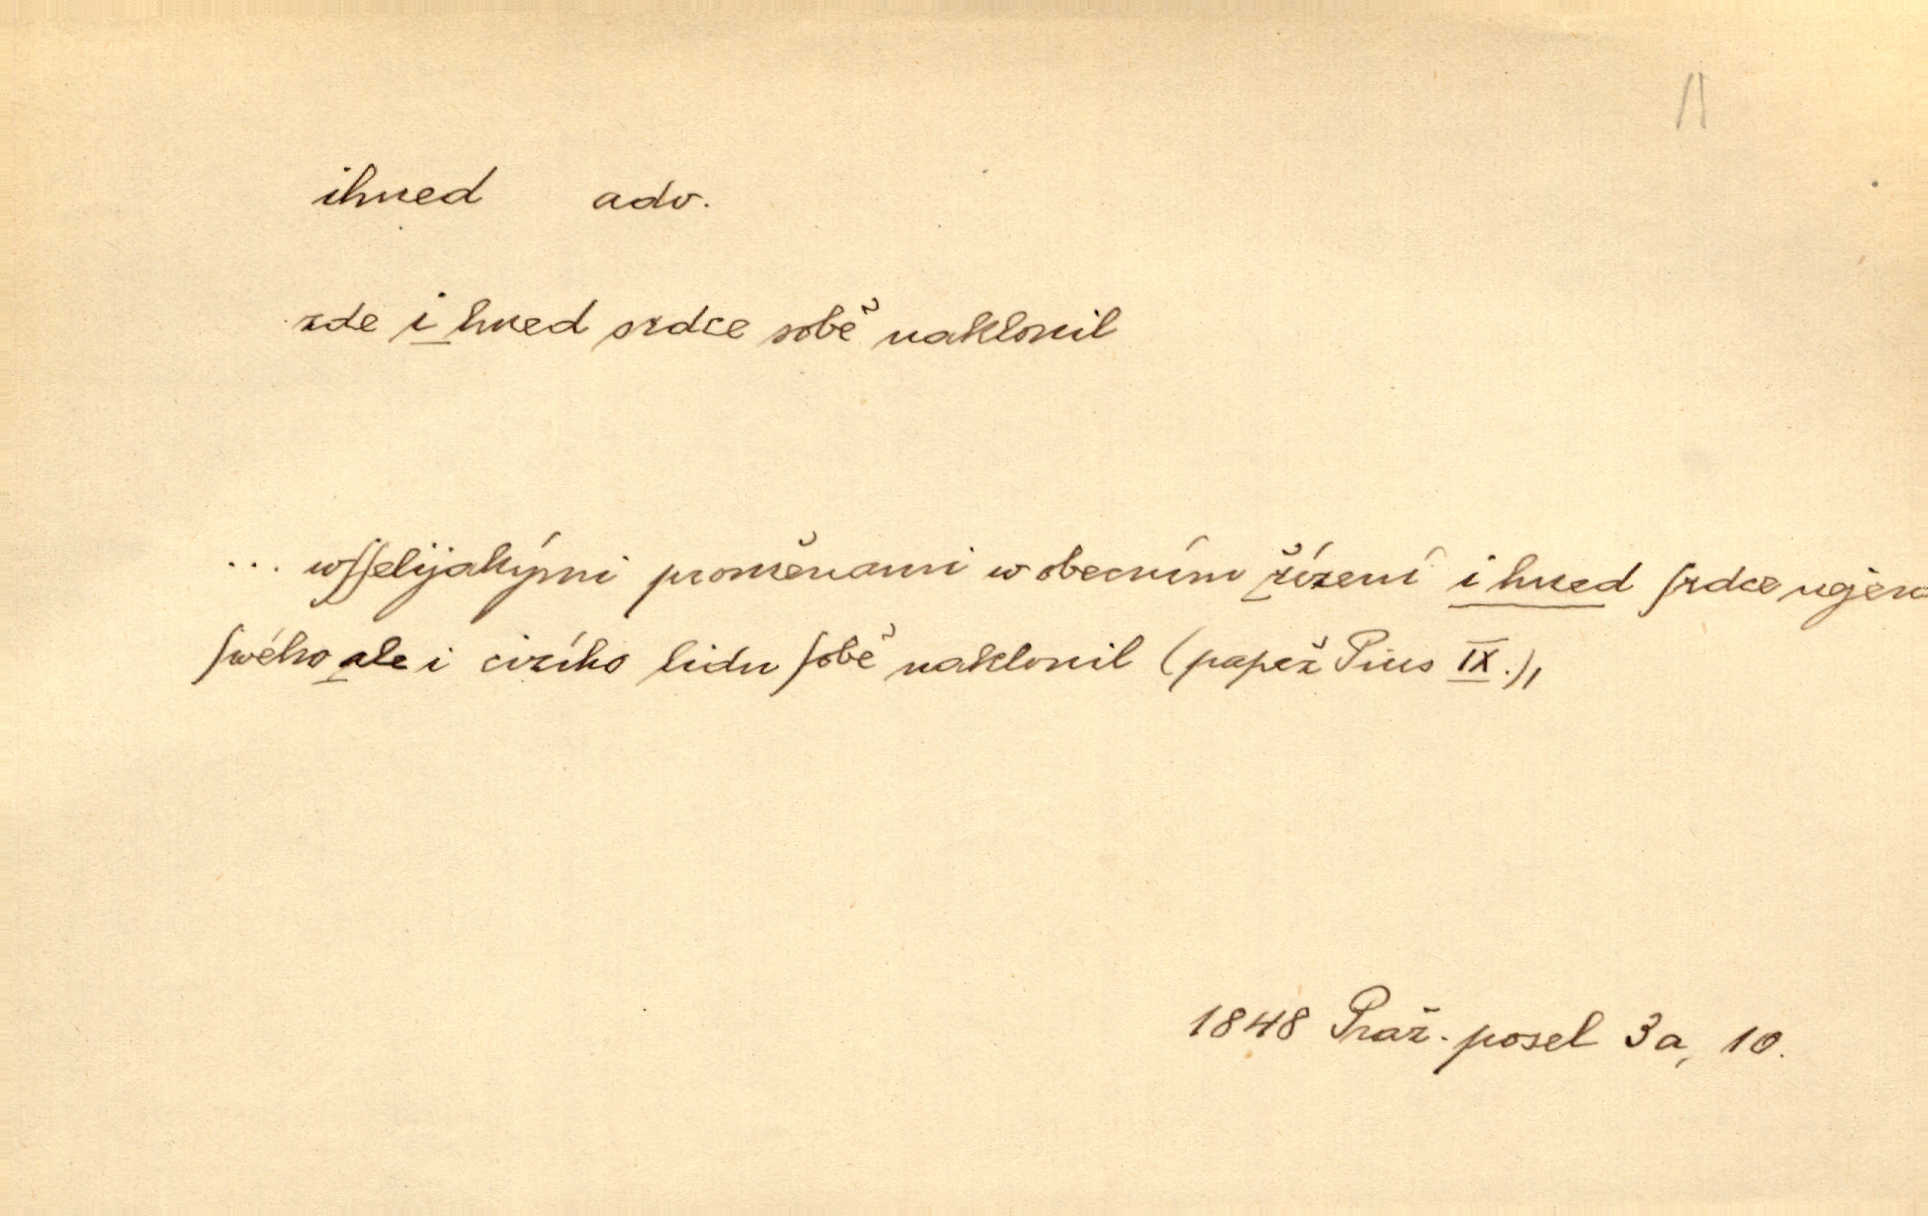 ihned adv.
zde i hned srdce sobě naklonil
... wſſelijakými proměnami w obecním řízení i hned ſrdce
ſwého ale i cizího lidu ſobě naklonil (papež Pius IX.),
1848 Praž. posel 3a, 10.